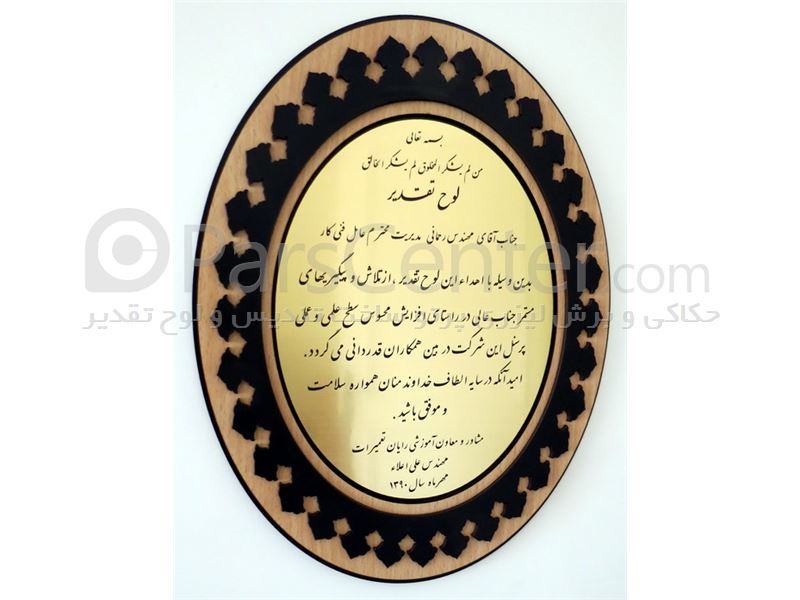 بسمه تعالی
من لم یشکر المخلوق لم یشکر الخالق
لوح تقدیر
جناب آقای مهندس رحمانی مدیریت محترم عامل فنی کار
بدین وسیله با اهداء این لوح تقدیر ، از تلاش و پیگیریهای
مستمر جناب عالی در راستای افزایش محسوس سطح علمی و عملی
پرسنل این شرکت در بین همکاران قدردانی می گردد .
امید آنکه در سایه الطاف خداوند منان همواره سلامت
و موفق باشید .
مشاور و معاون آموزشی رایان تعمیرات
مهندس علی اعلاء
مهرماه سال ۱۳۹۰
ParsCenter.com
حکاکی و برش لیزری پرتو ساخت تندیس و لوح تقدیر